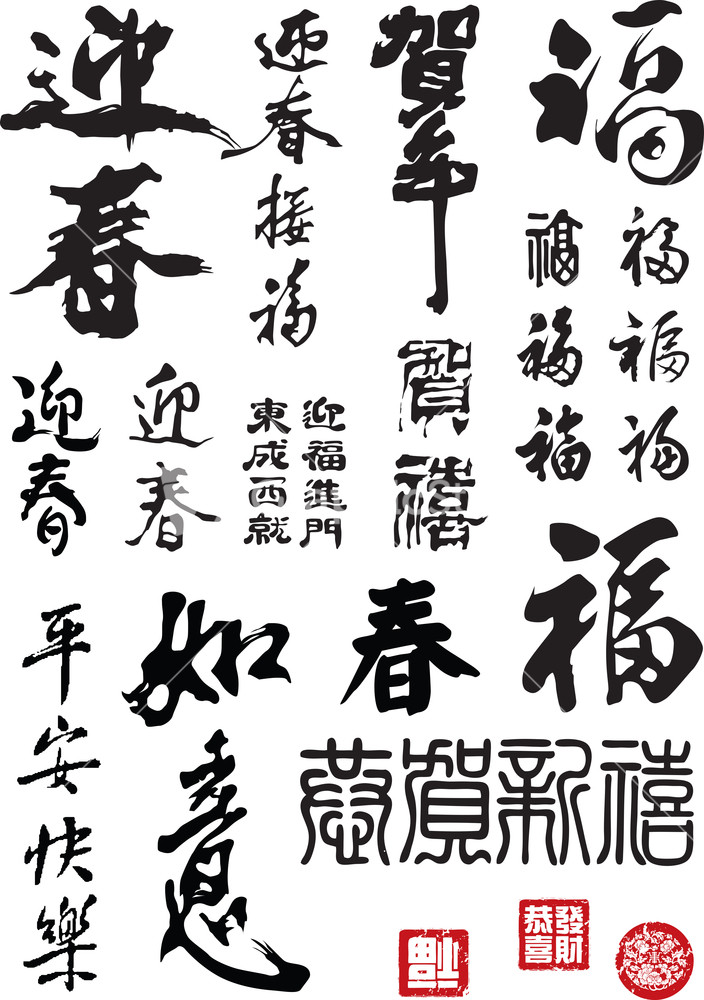 迎春
迎春接福
賀年
福
福
福
福
福
福
福
迎春
迎春
迎福進門
東成西就
賀禧
福
平安快樂
如意
春
恭賀新禧
福
恭喜
發財